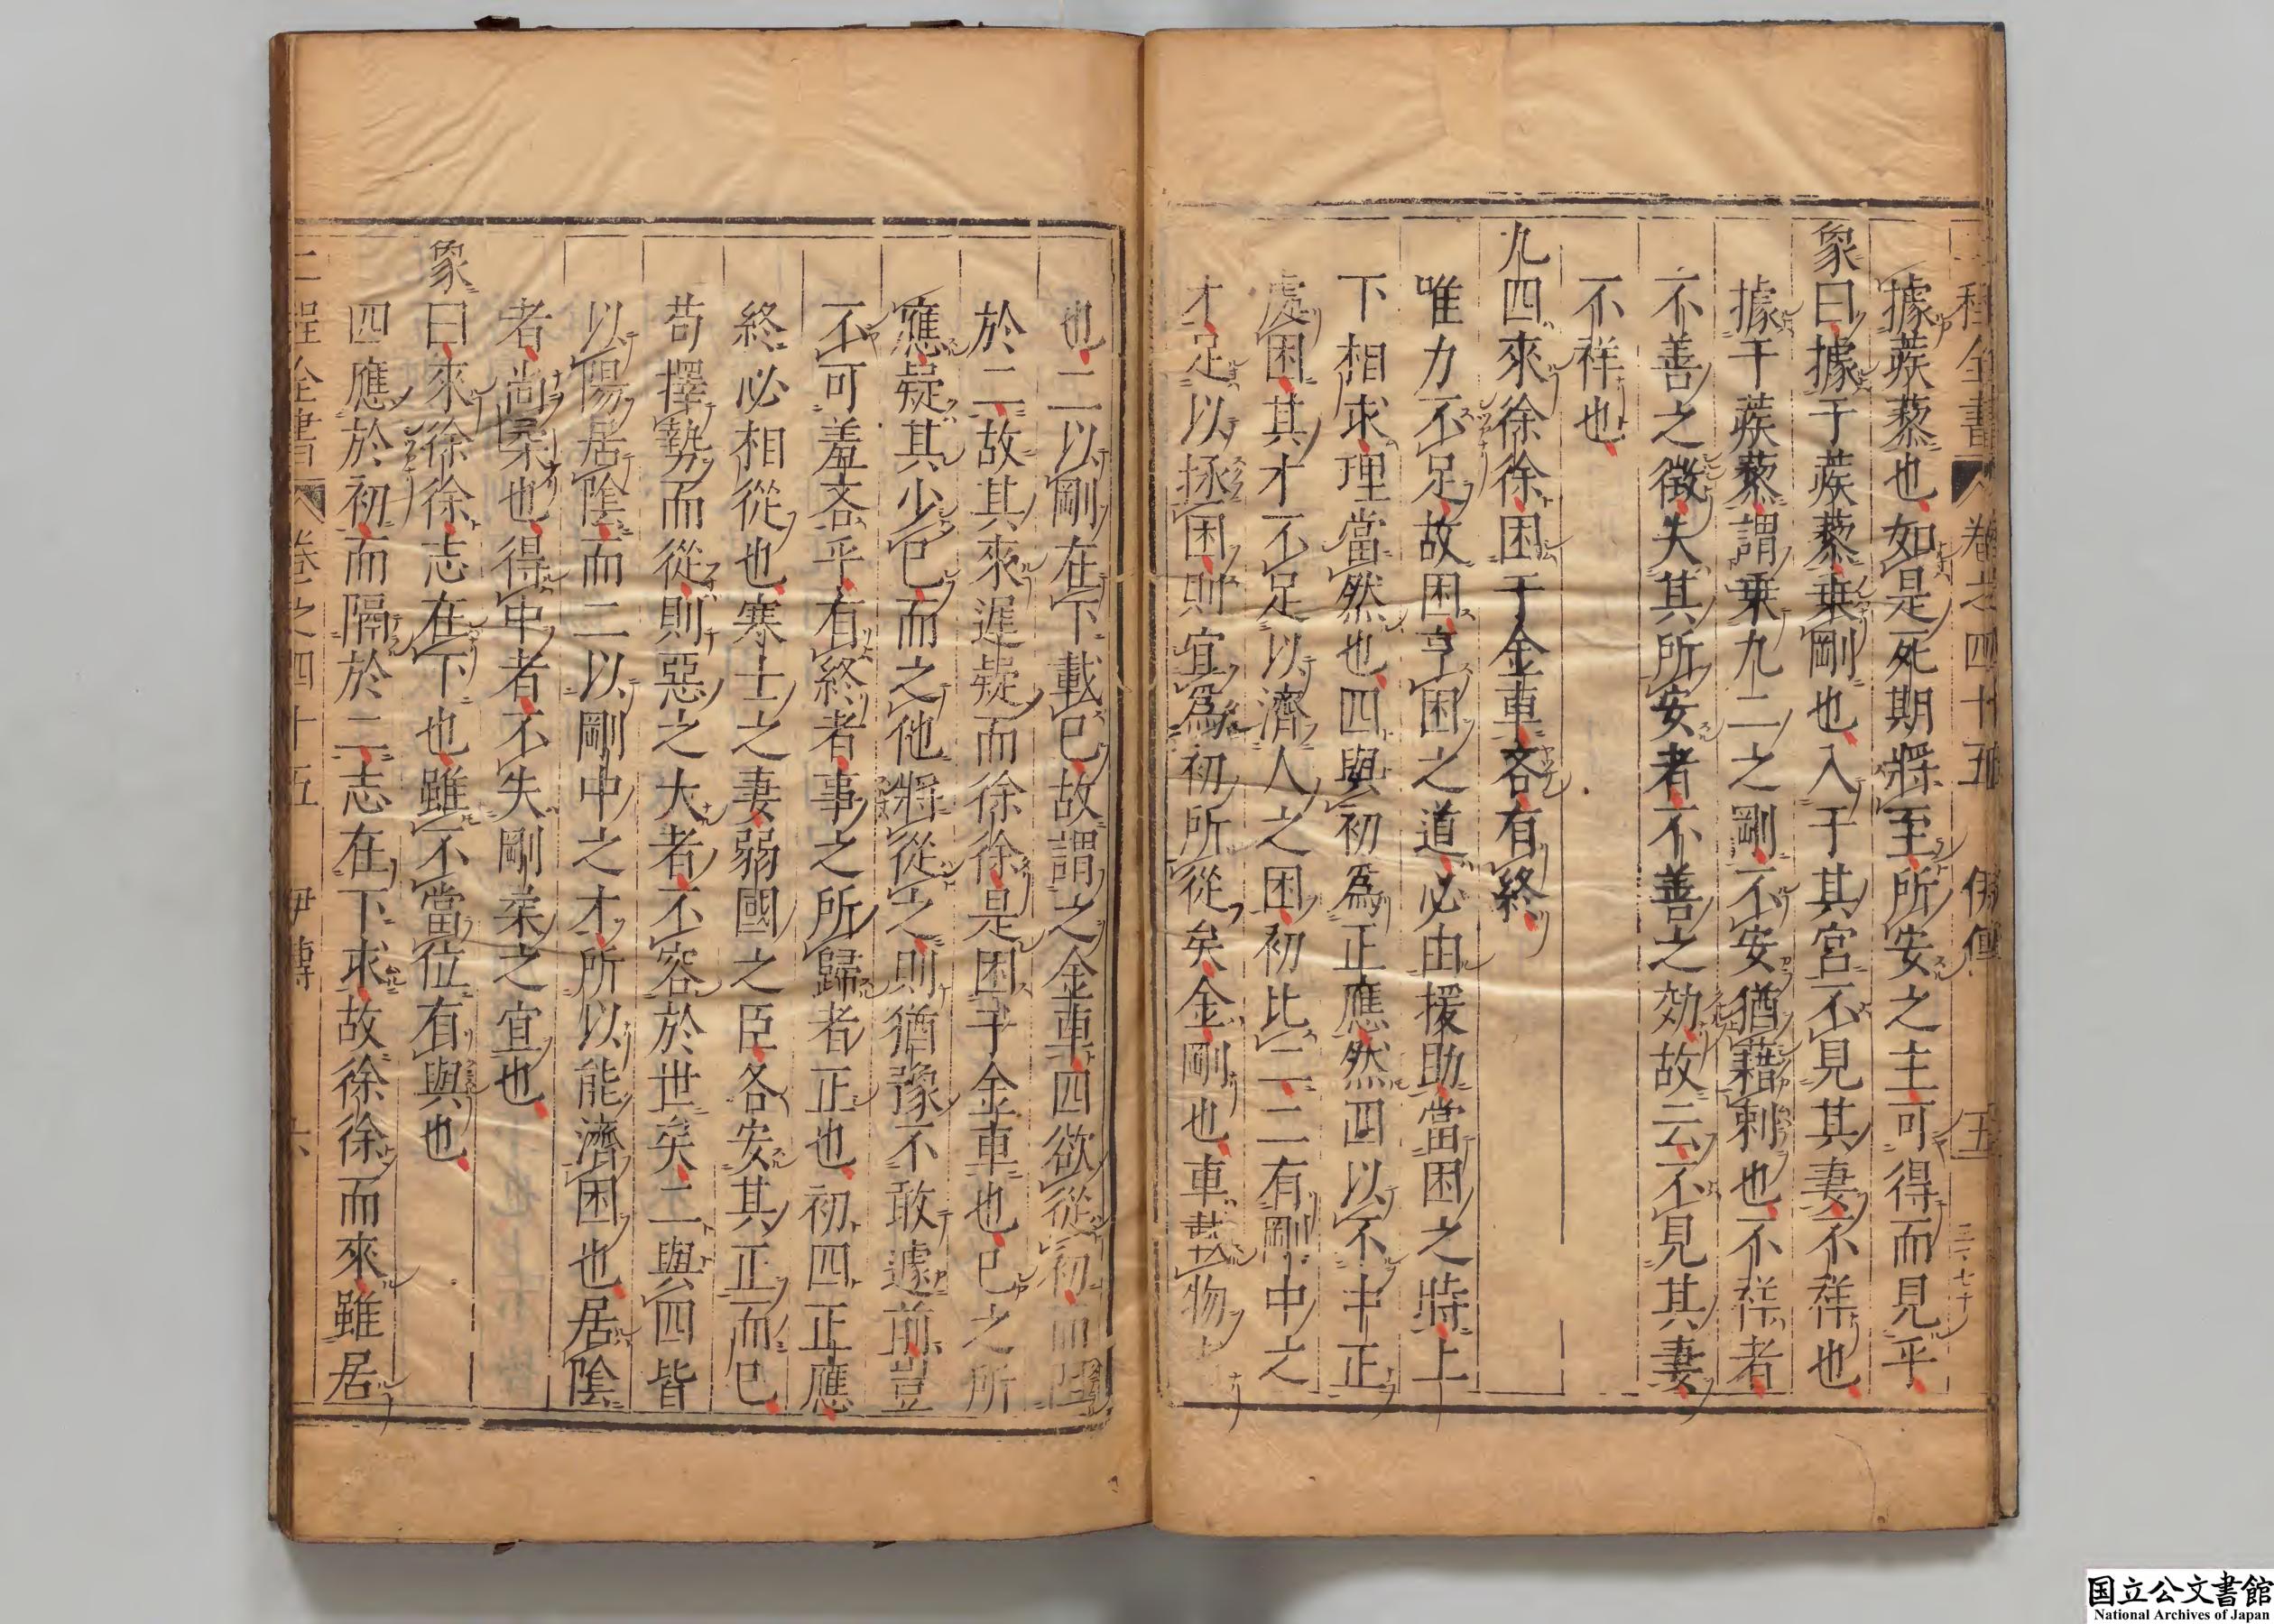 二程全書 卷之四十五 伊傳 五
據蒺藜也如是死期將至所安之主可得而見乎
象曰據于蒺藜乗剛也入于其宮不見其妻不祥也
據于蒺藜謂乗九二之剛不安猶藉刺也不祥者
不善之徵失其所安者不善之効故云不見其妻
不祥也
九四來徐徐困于金車吝有終
唯力不足故困亨困之道必由援助當困之時上
下相求理當然也四與初爲正應然四以不中正
處困其才不足以濟人之困初比二二有剛中之
才足以拯困則宜爲初所從矣金剛也車載物者
也二以剛在下載已故謂之金車四欲從初而阻
於二故其來遲疑而徐徐是困于金車也已之所
應疑其少已而之他將從之則猶豫不敢遽前豈
不可羞吝乎有終者事之所歸者正也初四正應
終必相從也寒士之妻弱國之臣各安其正而已
苟擇勢而從則惡之大者不容於世矣二與四皆
以陽居陰而二以剛中之才所以能濟困也居陰
者尚柔也得中者不失剛柔之宜也
象曰來徐徐志在下也雖不當位有與也
四應於初而隔於二志在下求故徐徐而來雖居
二程全書 卷之四十五 伊傳 六
国立公文書館
National Archives of Japan